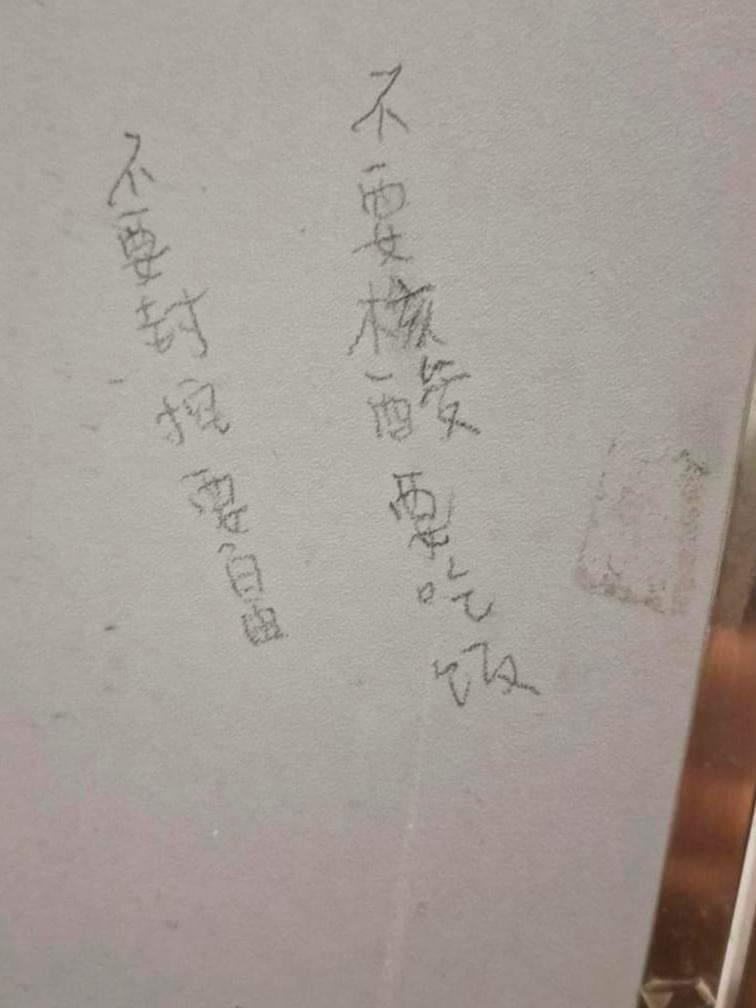 不要核酸要吃饭
不要封控要自由